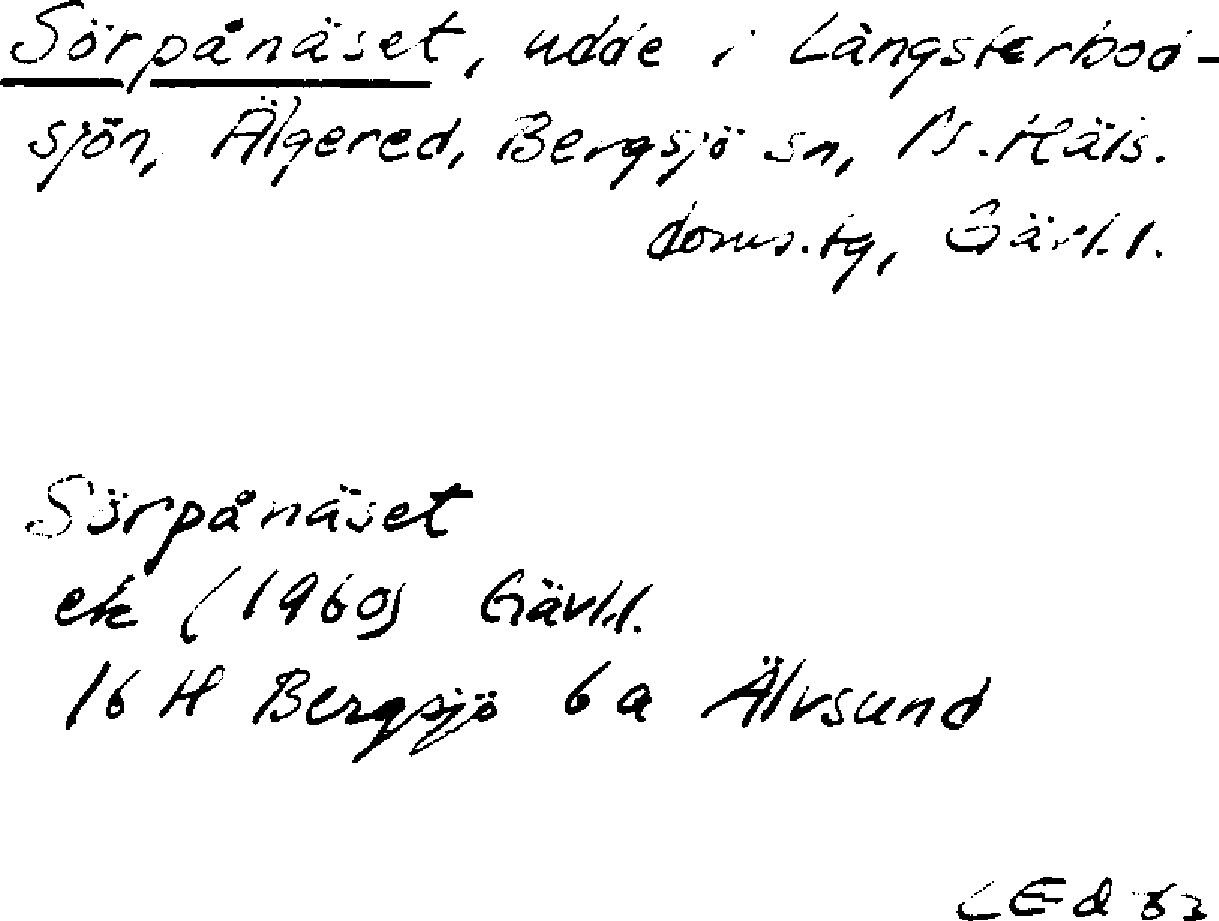 Sörpånäset, udde i Långsterbod-
sjön, Älgered, Bergsjö sn, N.Häls.
doms.tg, Gävl.l.
Sörpånäset
ek (1960) Gävl.l.
16 H Bergsjö 6a Älvsund
LEd